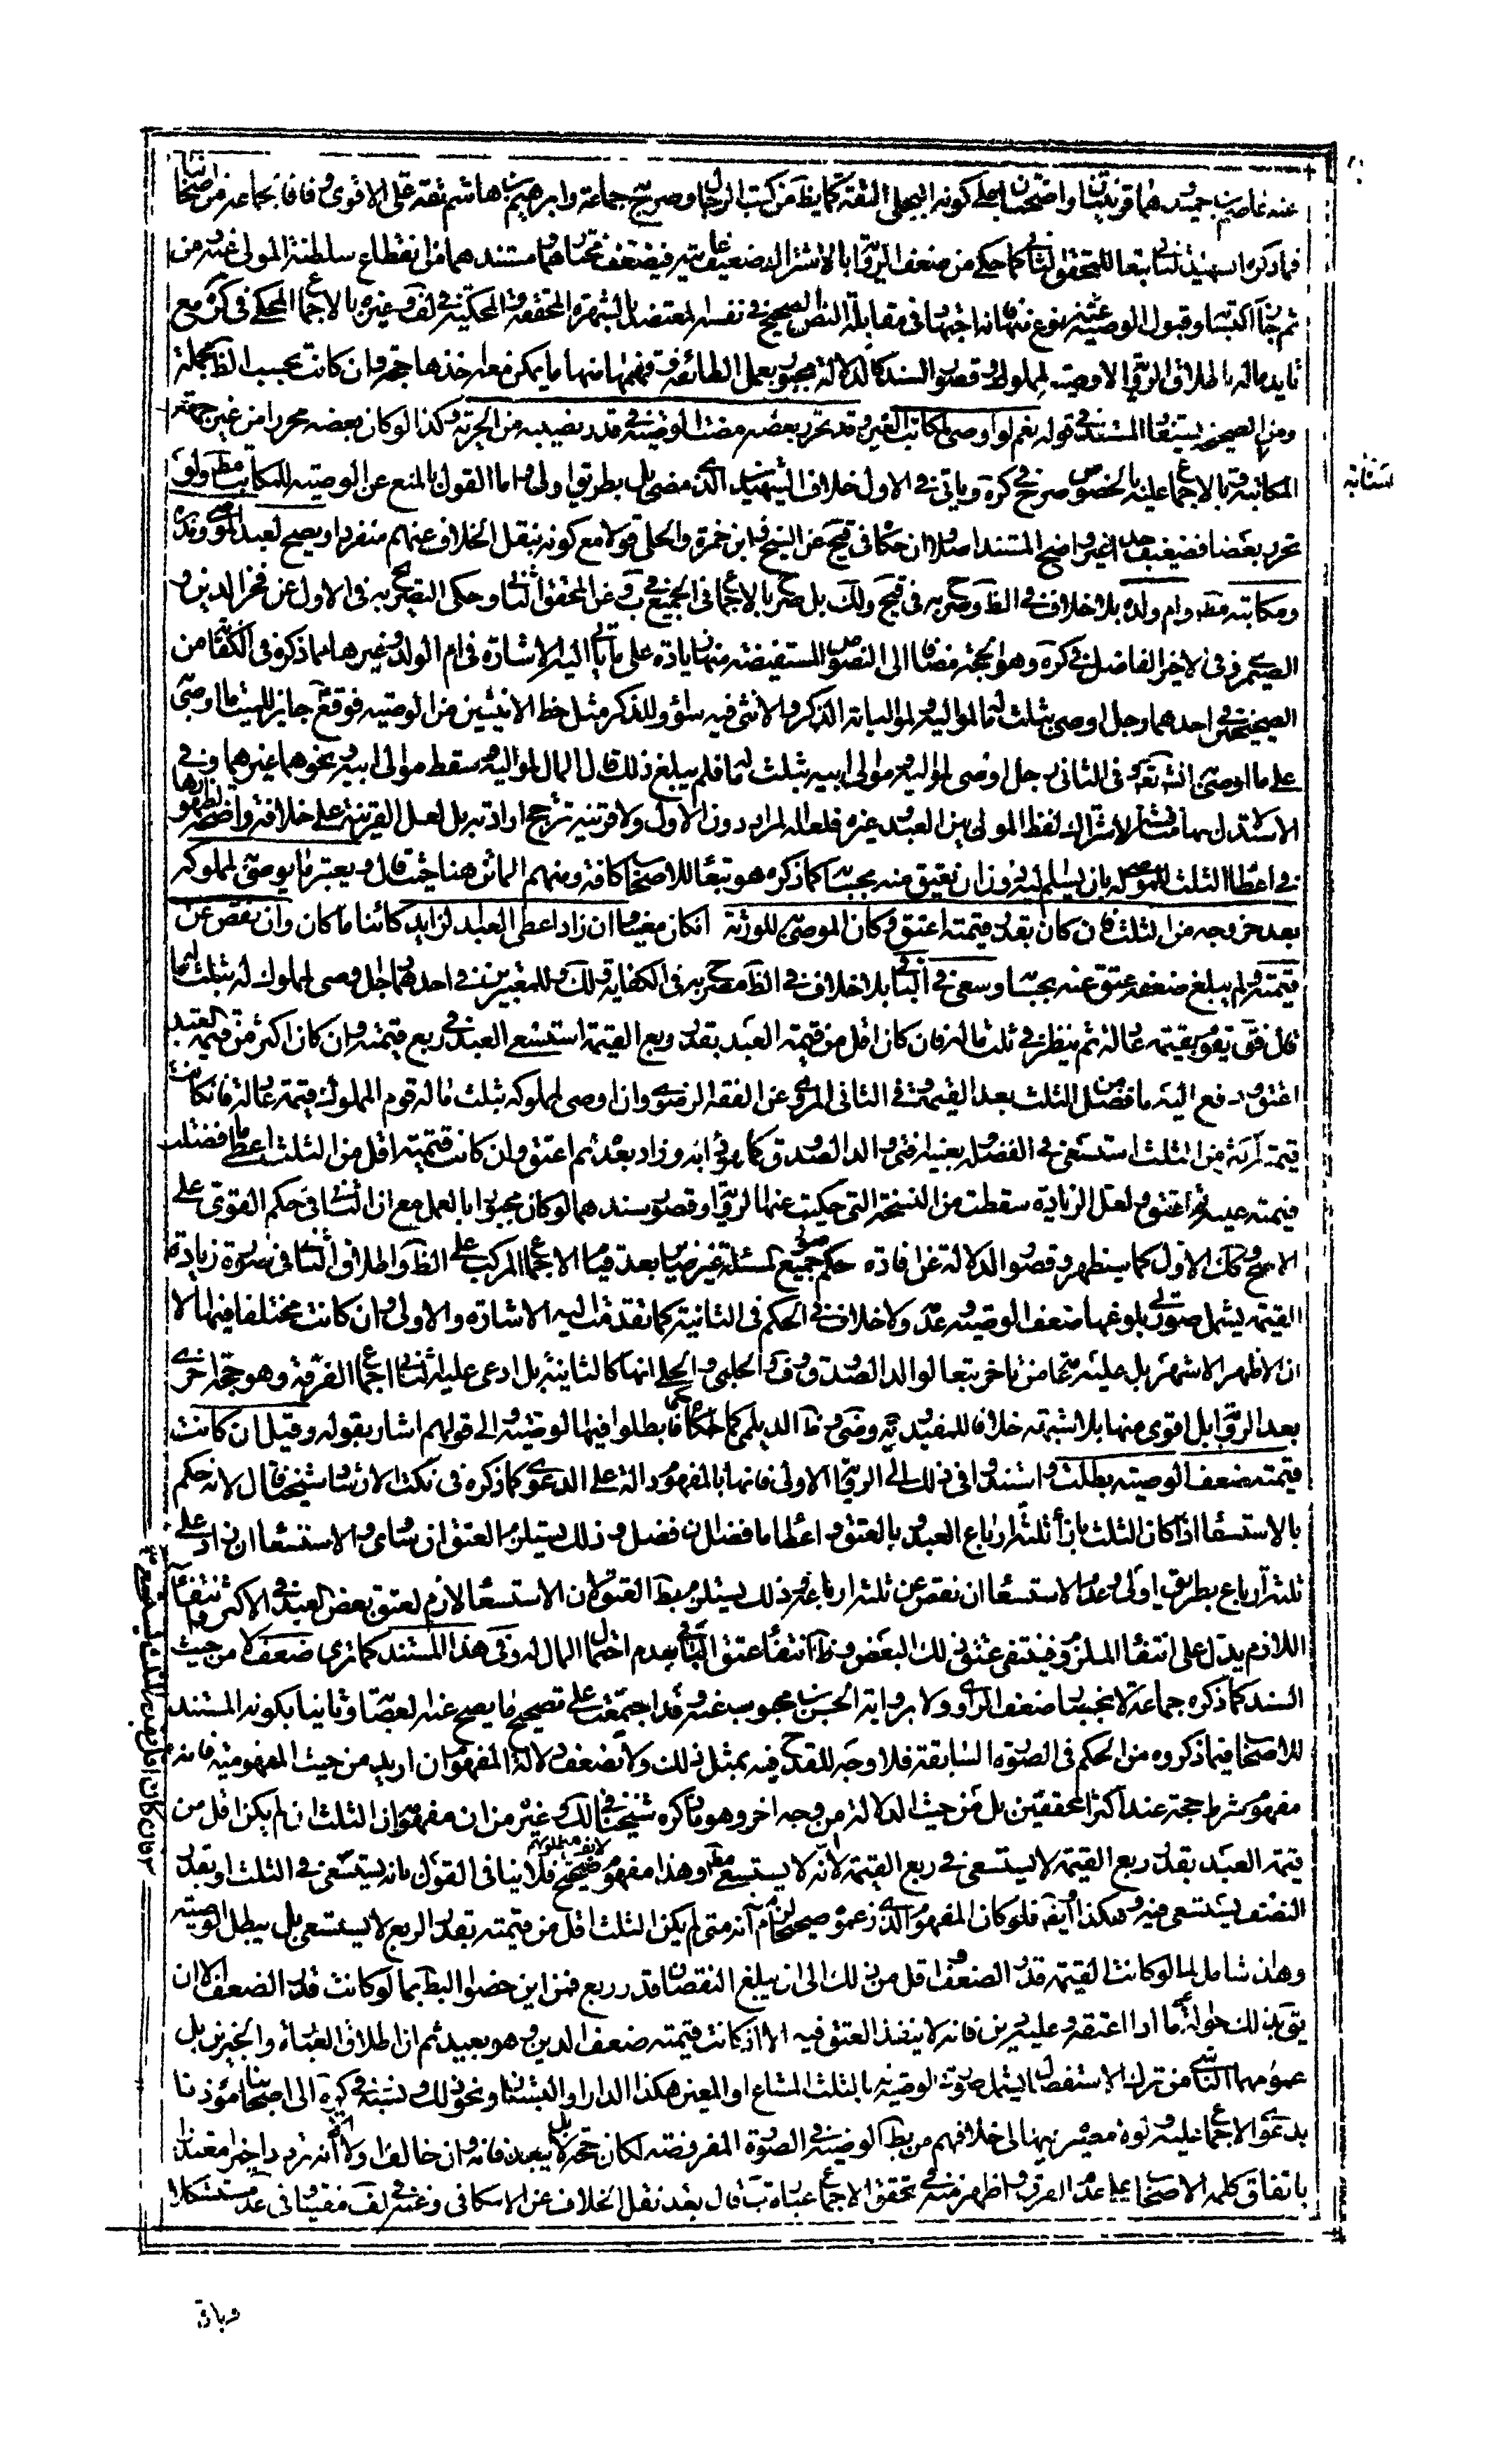 عنه عاصم بن حميد وهما قرينتان واضحتان على كونه البجلي الثقة كما يظهر من كتب الرجال وصريح جماعة وابرهيم بن هاشم ثقة على الاقوى وفاقا لجماعة من اصحابنا
فما ذكره الشهيد الثاني تبعا للمحقق الثاني كما حكي من ضعف الرواية بالاشتراك ضعيف غايته فيضعف مختارهما ومستندهما من انقطاع سلطنة المولى عنه ومن
ثم جاز اكتسابه وقبول الوصية نوع منها فانه اجتهاد في مقابلة النص الصحيح في نفسه المعتضد بالشهرة المحققة والمحكية في لف وغيره بالاجماع المحكي في كنز مع
تايده اله باطلاق الرواية لا وصية لمملوك وقصور السند كالدلالة مجبور بعمل الطائفة وفهمها منها ما يمكن معه اخذها حجة وان كانت بحسب الظ مجملة
ومن الصحيح يستفاد المستند في قوله نعم لو اوصى لمكاتب الغير وقد تحرر بعضه مضت الوصية في قدر نصيبه من الحرية وكذا لو كان بعضه محررا من غير جهة
المكاتبة وبالاجماع عليه بالخصوص صرح في كره وياتي في الاول خلاف الشهيد الذي مضى بل بطريق اولى واما القول بالمنع عن الوصية للمكاتب مط ولو
تحرر بعضا فضعيف جدا غير واضح المستند اصلا وان حكاه في قيح عن الشيخ وابن حمزة والحلي قولا مع كونه بنقل الخلاف عنهم منفردا ويصح لعبد الموصي ومدبره
ومكاتبه مط وام ولده بلا خلاف في الظ وصرح به في قيح ولك بل صرح بالاجماع في الجميع في ب وعن المحقق الثاني وحكى التصريح به في الاول عن فخر الدين و
الصيمري وفي الاخير الفاضل في كره وهو الحجة مضافا الى النصوص المستفيضة منها زيادة على ما ياتي اليه الاشارة في ام الولد وغيرها ما ذكره في الكفاية من
الصحيحين في احدهما رجل اوصى بثلث ماله لمواليه ولمولياته الذكر والانثى فيه سواء وللذكر مثل حظ الانثيين من الوصية فوقع ع جايز للميت ما اوصى
على ما اوصى انشاء الله وفي الثاني رجل اوصى لمواليه وموالي ابيه بثلث ماله فلم يبلغ ذلك قال المال لمواليه وسقط موالي ابيه ونحوهما غيرهما وفي
الاستدلال بهما مناقشة لاشتراك لفظ المولى بين العبد وغيره فلعله المراد دون الاول ولا قرينة ترجح ارادته بل لعل القرينة على خلافه واضحة لظهورها
في اعطاء الثلث للموصى له بان يسلم اليه دون ان يعتق منه بحسابه كما ذكره هو تبعا للاصحاب كافة ومنهم الماتن هنا حيث قال ويعتبر ما يوصي لمملوكه
بعد خروجه من الثلث فان كان بقدر قيمته اعتق وكان الموصى به للورثة ان كان مغينا وان زاد اعطي العبد الزايد كائنا ما كان وان نقص عن
قيمته ولم يبلغ ضعفه عتق عنه بحسابه وسعى في الباقي بلا خلاف في الظ مصرح به في الكفاية ولك وللمعتبرين في احدهما رجل اوصى لمملوك له بثلث ماله
قال فق يقوم بقيمة عالة ثم ينظر في ثلث ماله فان كان اقل من قيمة العبد بقدر ربع القيمة استسعى العبد في ربع قيمته وان كان اكثر من قيمة العبد
اعتق ودفع اليه ما فضل من الثلث بعد القيمة وفي الثاني المروي عن الفقه الرضوي وان اوصى لمملوكه بثلث ماله قوم المملوك قيمة عالة فان كانت
قيمته اكثر من الثلث استسعى في الفضل وبعينه افتى والد الصدوق كما رواه ابنه وزاد بعد ثم اعتق وان كانت قيمته اقل من الثلث اعطي ما فضلت
قيمته عليه ثم اعتق ولعل الزيادة سقطت من النسخة التي حكيت عنها الرواية وقصور سندهما لو كان مجبور بالعمل مع ان الثاني في حكم القوي على
الاصح وكك الاول كما يستظهر وقصور الدلالة عن افادة حكم جميع صور المسئلة غير ضاير بعد قيام الاجماع المركب على الظ واطلاق الثاني في صورة زيادة
القيمة يشمل صورتي بلوغها ضعف الوصية وعدمه ولا خلاف في الحكم في الثانية كما تقدمت اليه الاشارة والاولى وان كانت مختلفا فيها الا
ان الاظهر الاشهر بل عليه عامة من تاخر تبعا لوالد الصدوق وف والحلبي والحلي انها كالثانية بل ادعى عليه الثاني اجماع الفرقة وهو حجة اخرى
بعد الرواية بل اقوى منها بلا شبهة خلافا للمفيد ويه وضي وظ الديلمي كما حكاه جماعة فابطلوا فيها الوصية والى قولهم اشار بقوله وقيل ان كانت
قيمته ضعف الوصية بطلت واستندوا في ذلك الى الرواية الاولى فانها بالمفهوم دالة على الدعوى كما ذكره في نكت الارشاد شيخنا قال لانه حكم
بالاستسعاء اذا كان الثلث بازاء ثلثة ارباع العبد وبالعتق واعطاء ما فضل ان فضل وذلك يستلزم العتق ان ساوى والاستسعاء ان زاد على
ثلثة ارباع بطريق اولى وعدم الاستسعاء ان نقص عن ثلثة ارباعه وذلك يستلزم بط العتق لان الاستسعاء لازم لعتق بعض العبد في الاكثر وانتفاء
اللازم يدل على انتفاء الملزوم فينتفي عتق ذلك البعض وظ انتفاء عتق الباقي بعدم احتمال المال له وفي هذا المستند كما ترى ضعف لا من حيث
السند كما ذكره جماعة لانجباره ضعف الراوي اولا برواية الحسن بن محبوب عنه وقد اجمعت على تصحيح ما يصح عنه العصابة وثانيا بكونه المستند
للاصحاب فيما ذكروه من الحكم في الصورة السابقة فلا وجه للقدح فيه بمثل ذلك ولا لضعف دلالة المفهوم ان اريد من حيث المفهومية فانه
مفهوم شرط حجة عند اكثر المحققين بل من حيث الدلالة من وجه اخر وهو ما ذكره شيخنا في لك وغيره من ان مفهومه ان الثلث ان لم يكن اقل من
قيمة العبد بقدر ربع القيمة لا يستسعى في ربع القيمة لا انه لا يستسعى مط وهذا مفهوم صحيح فلا ينافي القول بانه يستسعى في الثلث او بقدر
النصف يستسعى فيه وهكذا ايض فلو كان المفهوم الذي زعموه صحيحا لزم انه متى لم يكن الثلث اقل من قيمته بقدر الربع لا يستسعى بل يبطل الوصية
وهذا شامل لما لو كانت القيمة قدر الضعف واقل من ذلك الى ان يبلغ النقصان قدر ربع فمن اين خصوا البط بما لو كانت قدر الضعف الا ان
يؤيد ذلك بحوالة ما اذا اعتقه وعليه دين فانه لا ينفذ العتق فيه الا اذا كانت قيمته ضعف الدين وهو بعيد ثم ان اطلاق العبارة والخبرين بل
عمومهما الناشي من ترك الاستفصال يشمل صورتي الوصية بالثلث المشاع او المعين كهذا الدار او البستان ونحو ذلك ونسبه في كره الى اصحابنا مؤذنا
بدعوى الاجماع عليه ولوه مصير بينها الى خلافهم من بط الوصية في الصورة المفروضة لكان حجة بل لا يبعد فانه وان خالف اولا الا انه تردد اخيرا معتذرا
باتفاق كلمة الاصحاب على عدم الفرق واظهر منه في تحقق الاجماع عبارة ب قال بعد نقل الخلاف عن الاسكافي وغيره لف مفتيا في عد مستشكلا
وباق